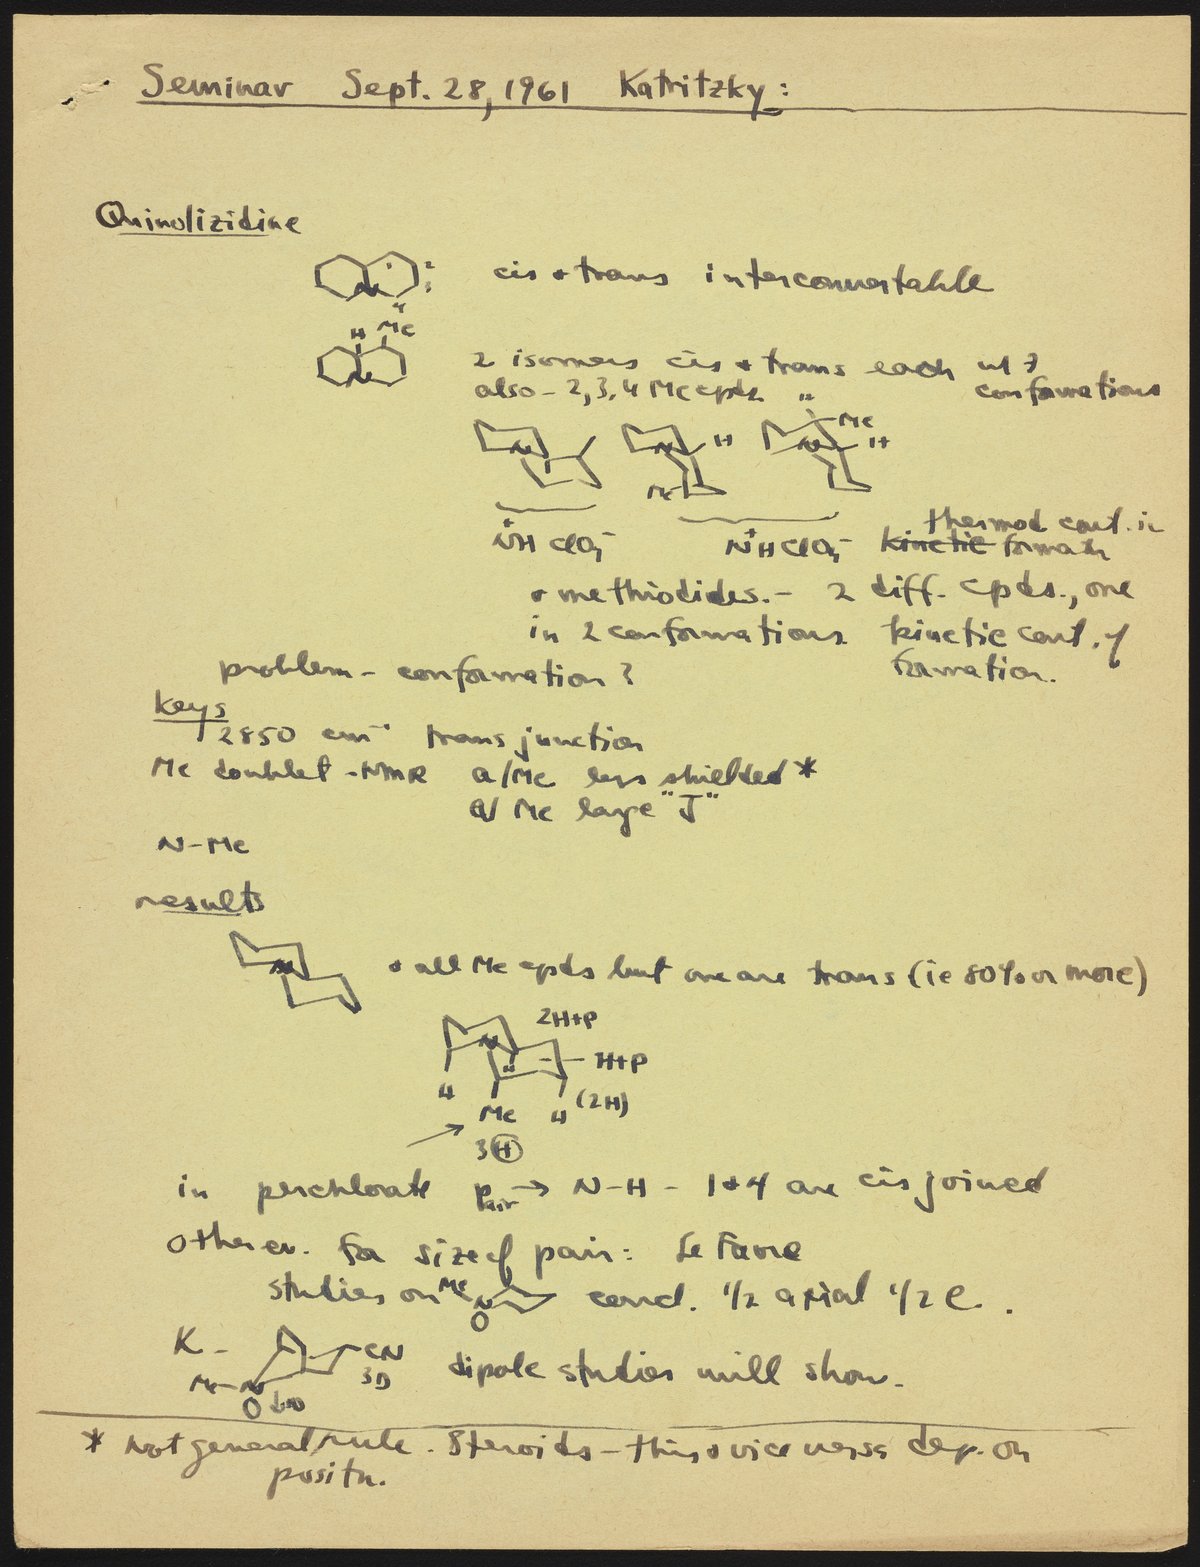 Seminar Sept. 28, 1961 Katritzky:
Quinolizidine
2
3
4
cis + trans interconvertable
H Me
N
2 isomers cis + trans each w/ 3
also - 2,3,4 Me cpds " conformations
N N H N Me H
Me
thermod cont. in
N⁺H ClO₄⁻ N⁺H ClO₄⁻ kinetic formatn
+ methiodides. - 2 diff. cpds., one
in 2 conformations kinetic cont. of
formation.
problem - conformation?
Keys
2850 cm⁻¹ trans junction
Me doublet - NMR a/Me less shielded *
a/ Me large "J"
N-Me
results
N + all Me cpds but one are trans (ie 80% or more)
2H+P
N H+P
H Me H (2H)
3 H
in perchlorate pair → N-H - 1+4 are cis joined
other ev. for size of pair: Le Favre
studies on Me N concl. 1/2 axial 1/2 e.
O
K - CN
Me-N 3D dipole studies will show.
* Not general rule. Steroids - this + vice versa dep. on
positn.